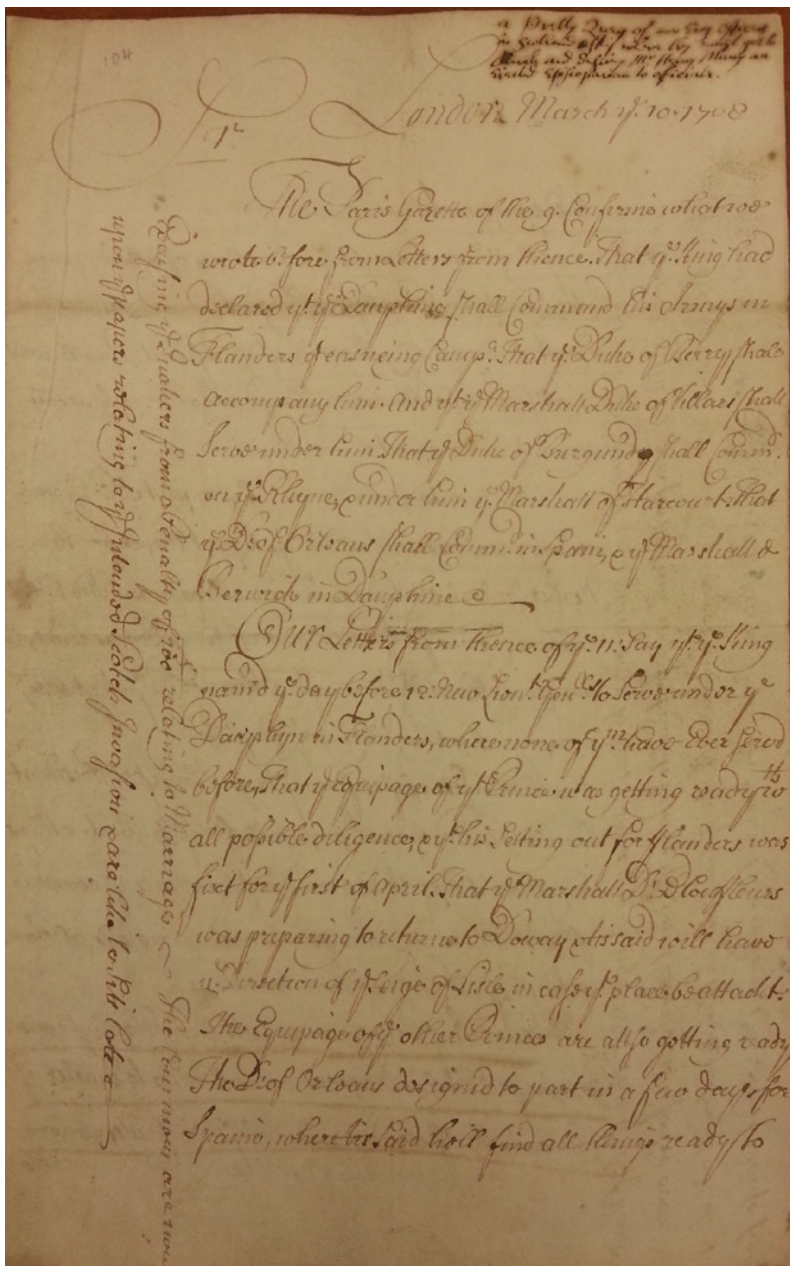 a Pretty
in Scotland
and
London March ye. 10. 1708
Sr
The Paris Gazette of the 9. Confirms what we
wrote before from Letters from thence. That ye. King had
declared yt. ye. Dauphine shall Command his Armys in
Flanders ye ensueing Camp. That ye. Duke of Berry shall
accompany him. And yt ye Marshall Duke of Villars shall
Serve under him That ye Duke of Burgundy shall Comm.
on ye. Rhyne, & under him ye. Marshall of Harcourt. That
ye D. of Orleans shall Comm. in Spain, & ye Marshall de
Berwick in Dauphine
Our Letters from thence of ye. 11. Say yt. ye. King
nam'd ye. day before 12. New Lieut. Gen. to Serve under ye
Dauphyn in Flanders, where none of ym. have Ever Serv'd
before, That ye equipage of yt Prince was getting ready wth
all possible diligence, & yt. his Setting out for Flanders was
fixt for ye first of April. That ye Marshall D. Bouflleurs
was preparing to return to Doway & tis said will have
ye Direction of ye Seige of Lisle in case yt. place be attackt.
The Equipage of ye other Princes are allso getting ready
The D. of Orleans designd to part in a few days for
Spaine, where tis Said he'll find all things ready to
Excusing ye Quakers from a Penalty of relating to Marriages The Commons are now
upon ye papers relating to ye Intended Scotch Invasion & are like to Sitt late